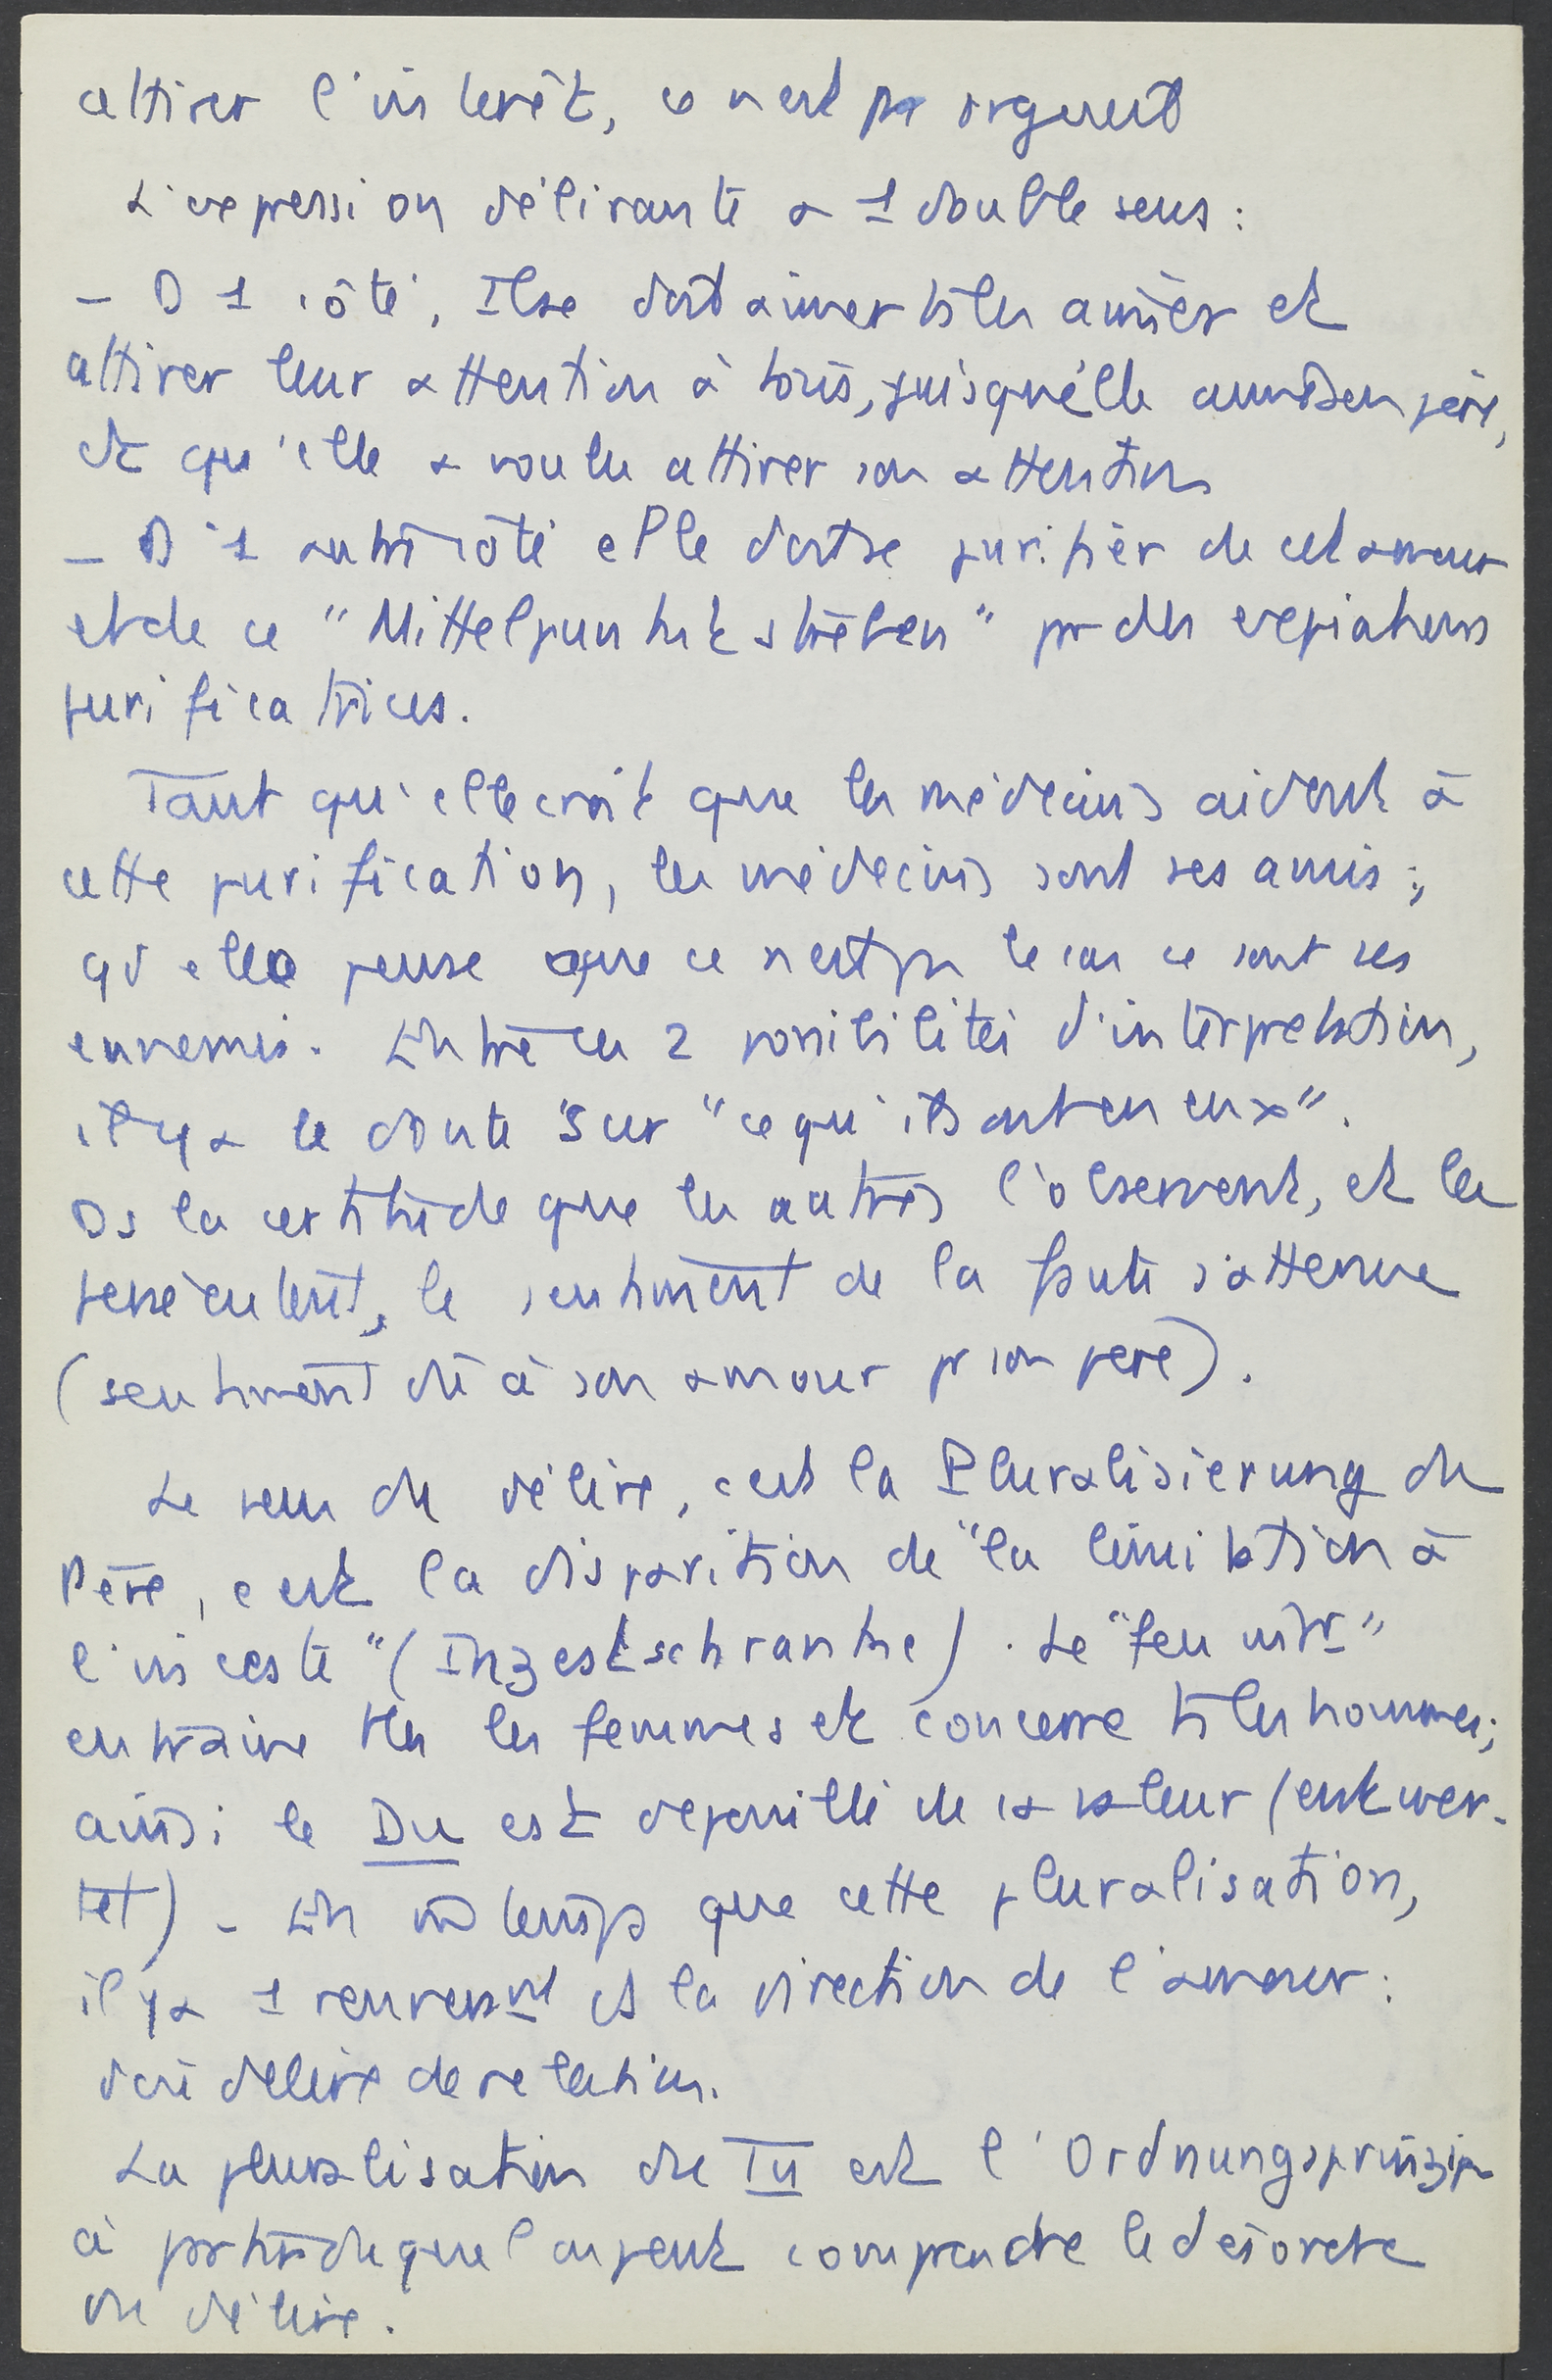 attirer l'intérêt, ce n'est pas orgueil
L'expression délirante a 1 double sens :
– D 1 côté, Ilse doit aimer ts les autres et
attirer leur attention à tous, puisqu'elle aime son père,
et qu'elle a voulu attirer son attention
– D'1 autre côté elle doit se purifier de cet amour
et de ce "Mittelpunktstreben" par des expiations
purificatrices.
Tant qu'elle croit que les médecins aident à
cette purification, les médecins sont ses amis ;
qd elle pense que ce n'est pas le cas ce sont ses
ennemis. Entre ces 2 possibilités d'interprétation,
il y a le doute sur "ce qu'ils ont en eux".
Ds la certitude que les autres l'observent, et la
persécutent, le sentiment de la faute s'atténue
(sentiment dû à son amour pr son père).
Le sens du délire, c'est la Pluralisierung du
Père, c'est la disparition de "la limitation à
l'inceste" (Inzestschranke). Le "feu
entraîne ttes les femmes et concerne ts les hommes ;
ainsi le Du est dépouillé de sa valeur (entwer-
tet) – En m̂ temps que cette pluralisation,
il y a 1 renversmt ds la direction de l'amour :
d'où délire de relation.
La pluralisation du Tu est l'Ordnungsprinzip
à partir du quel on peut comprendre le désordre
du délire.